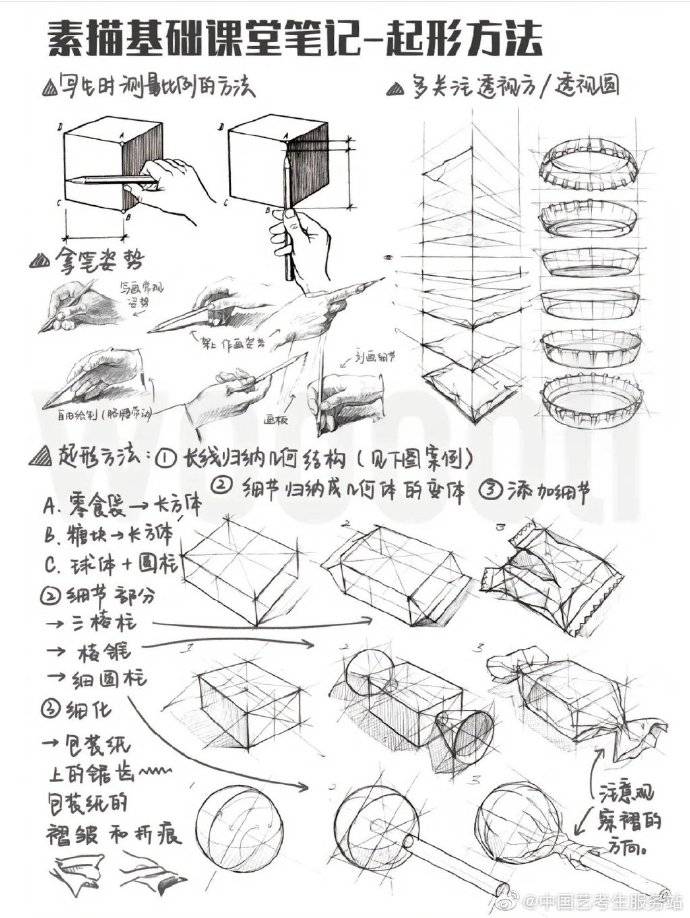 素描基础课堂笔记-起形方法
写生时测量比例的方法
多关注透视方/透视圆
D
A
C
B
D
A
C
B
拿笔姿势
写画常规
姿势
架上作画姿势
刻画细节
自由绘制(胳膊带动)
画板
起形方法:①长线归纳几何结构(见下图案例)
②细节归纳成几何体的变体 ③添加细节
A. 零食袋→长方体
B. 糖块→长方体
C. 球体+圆柱
②细节部分
→三棱柱
→棱锥
→细圆柱
③细化
→包装纸
上的锯齿
包装纸的
褶皱和折痕
1
2
3
1
2
3
1
2
3
注意观
察褶的
方向。
@中国艺考生服务站